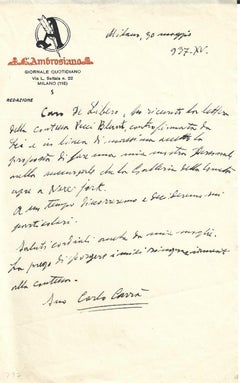 A
L'Ambrosiano
GIORNALE QUOTIDIANO
Via L. Settala n. 22
MILANO (118)
REDAZIONE
Milano, 30 maggio
937-XV.
Caro De Libero, ho ricevuto la lettera
della contessa Pecci Blunt, controfirmata da
Lei e in linea di massima accetto la
proposta di fare una mia mostra personale
nella succursale che la Galleria della Cometa
apre a New York.
A suo tempo discorreremo e decideremo sui
particolari.
Saluti cordiali anche da mia moglie.
La prego di porgere i miei
alla contessa.
Suo Carlo Carrà